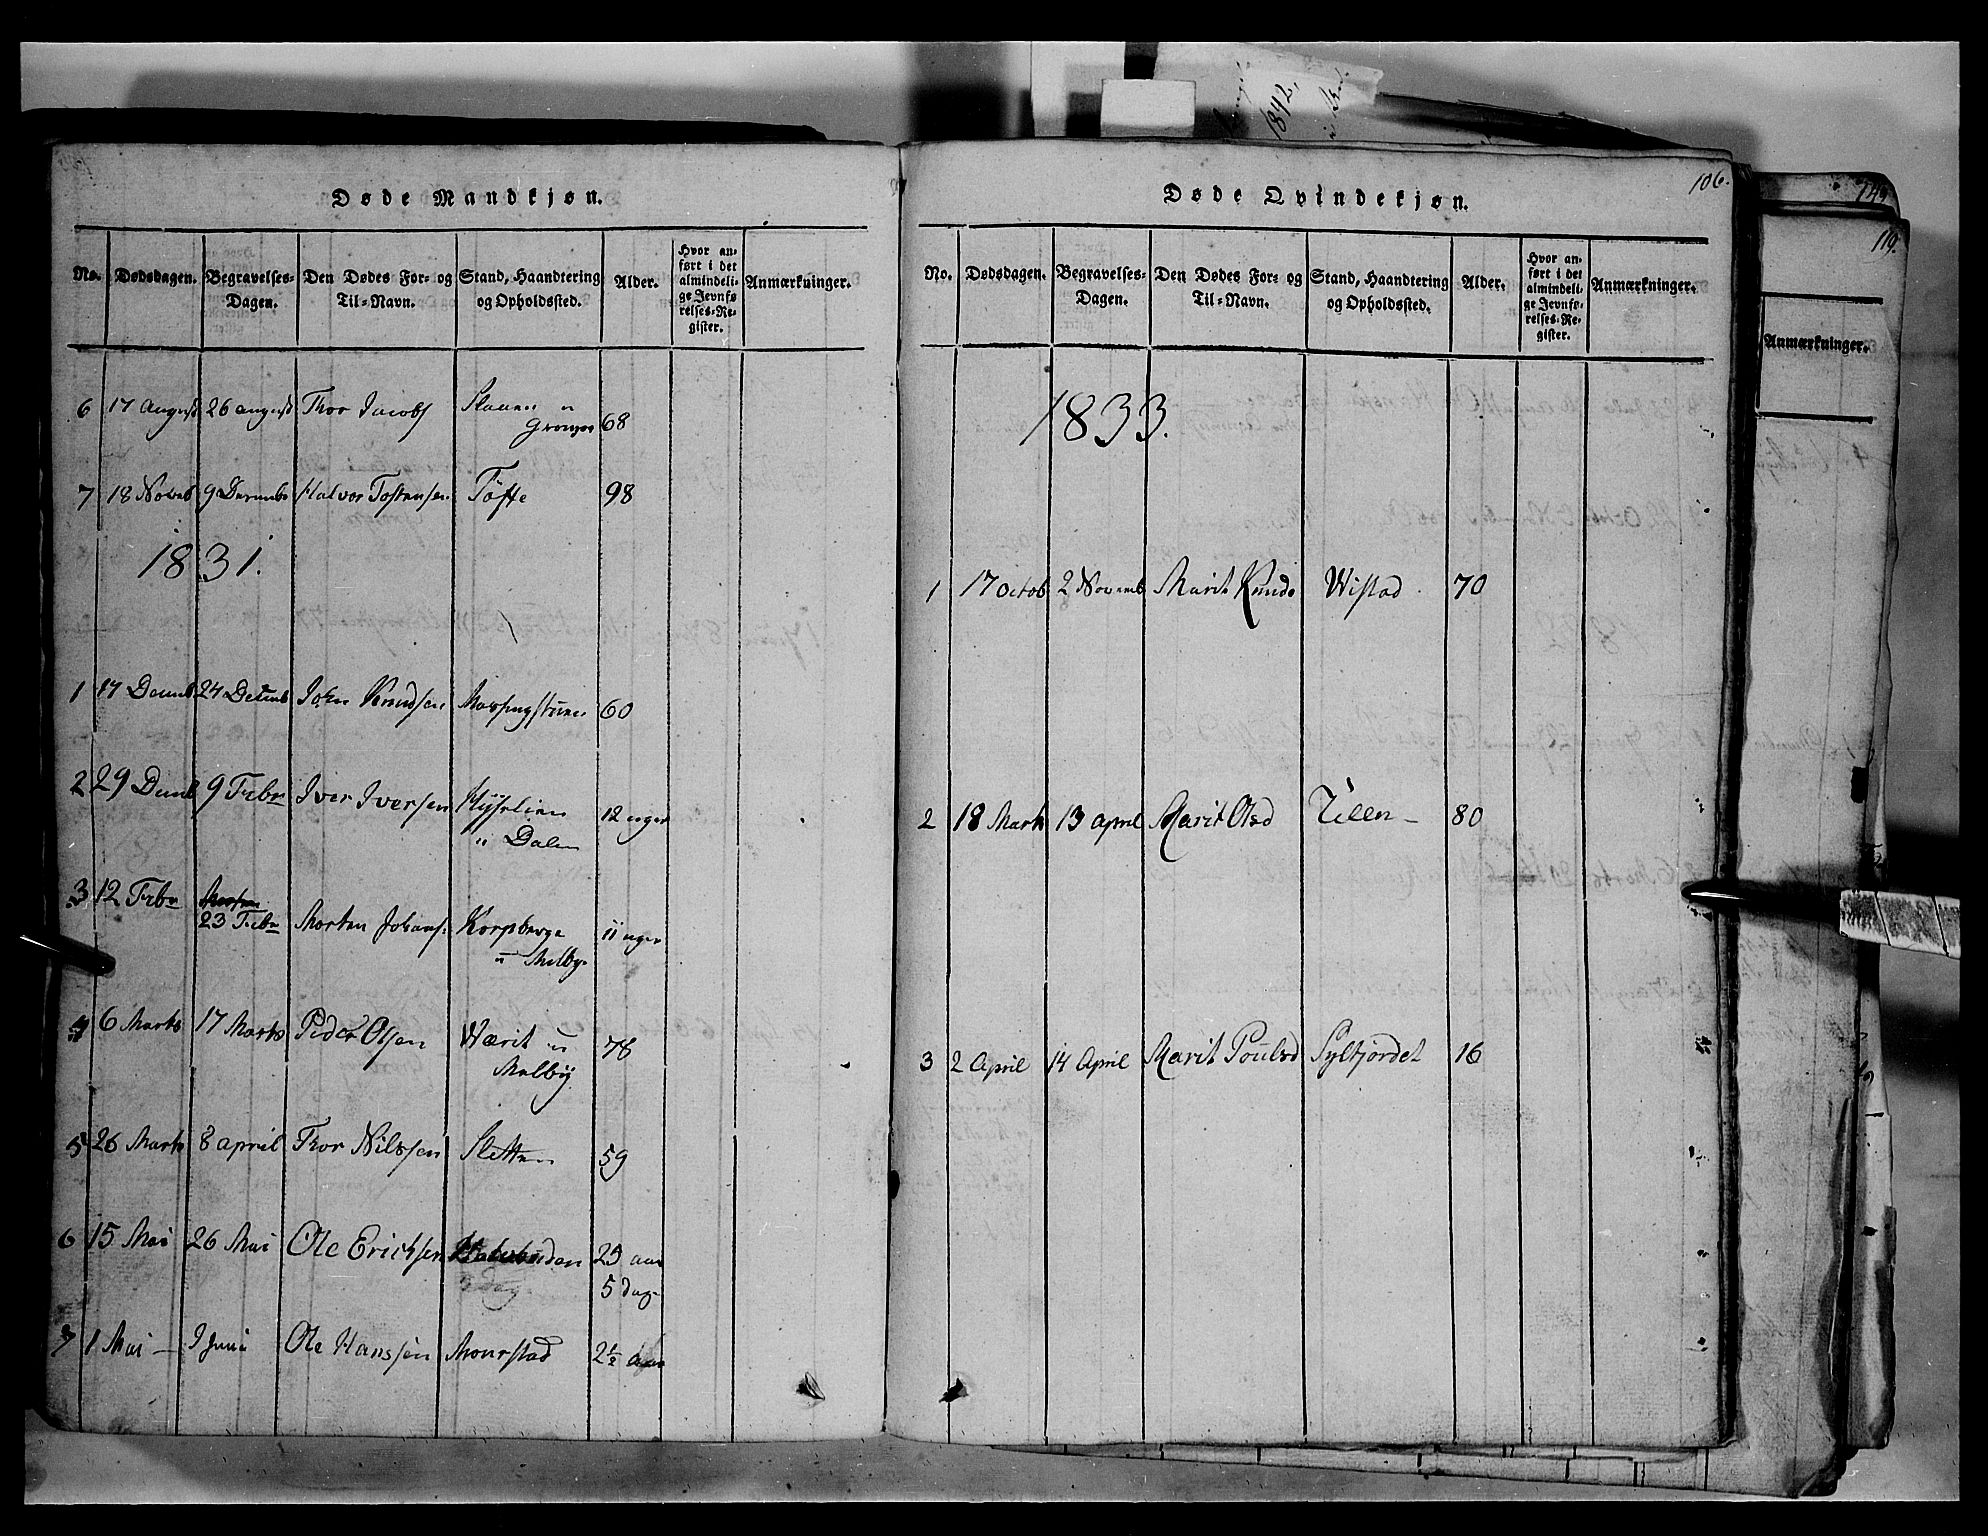 Døde Mandkjøn.
No. Dødsdagen. Begravelses-Dagen. Den Dødes For- og Til-Navn. Stand, Haandtering og Opholdssted. Alder. Hvor anført i det almindelige Jevnførelses-Register. Anmærkninger.
6 17 August 26 august Thor Jacobs 68
7 18 Novb 9 Decembr Halvor Tostensen Tofte 98
1831.
1 17 Decmb 24 Decmb John Knudsen 60
2 29 Decmb 9 Febr Iver Iversen
" Dalen 12 uger
3 12 Febr 23 Febr Morten Johans. Korpberge
" Melby 11 uger
4 6 Marts 17 Marts Peder Olsen Wærit u
Melby 78
5 26 Marts 8 april Thor Nilssen Sletten 59
6 15 Mai 26 Mai Ole Erichsen 25 aar
5 dage
7 1 Mai – 9 Juni Ole Hanssen Mourstad 2½ aar
106.
Døde Qvindekjøn.
No. Dødsdagen. Begravelses-Dagen. Den Dødes For- og Til-Navn. Stand, Haandtering og Opholdssted. Alder. Hvor anført i det almindelige Jevnførelses-Register. Anmærkninger.
1833.
1 17 Octob 2 Novemb Marit Knuds Wistad. 70
2 18 Marts 13 april Marit Olsd Tillen – 80
3 2 April 14 April Marit Poulsd Syltjordet 16
149
119.
Anmærkninger.
1842.